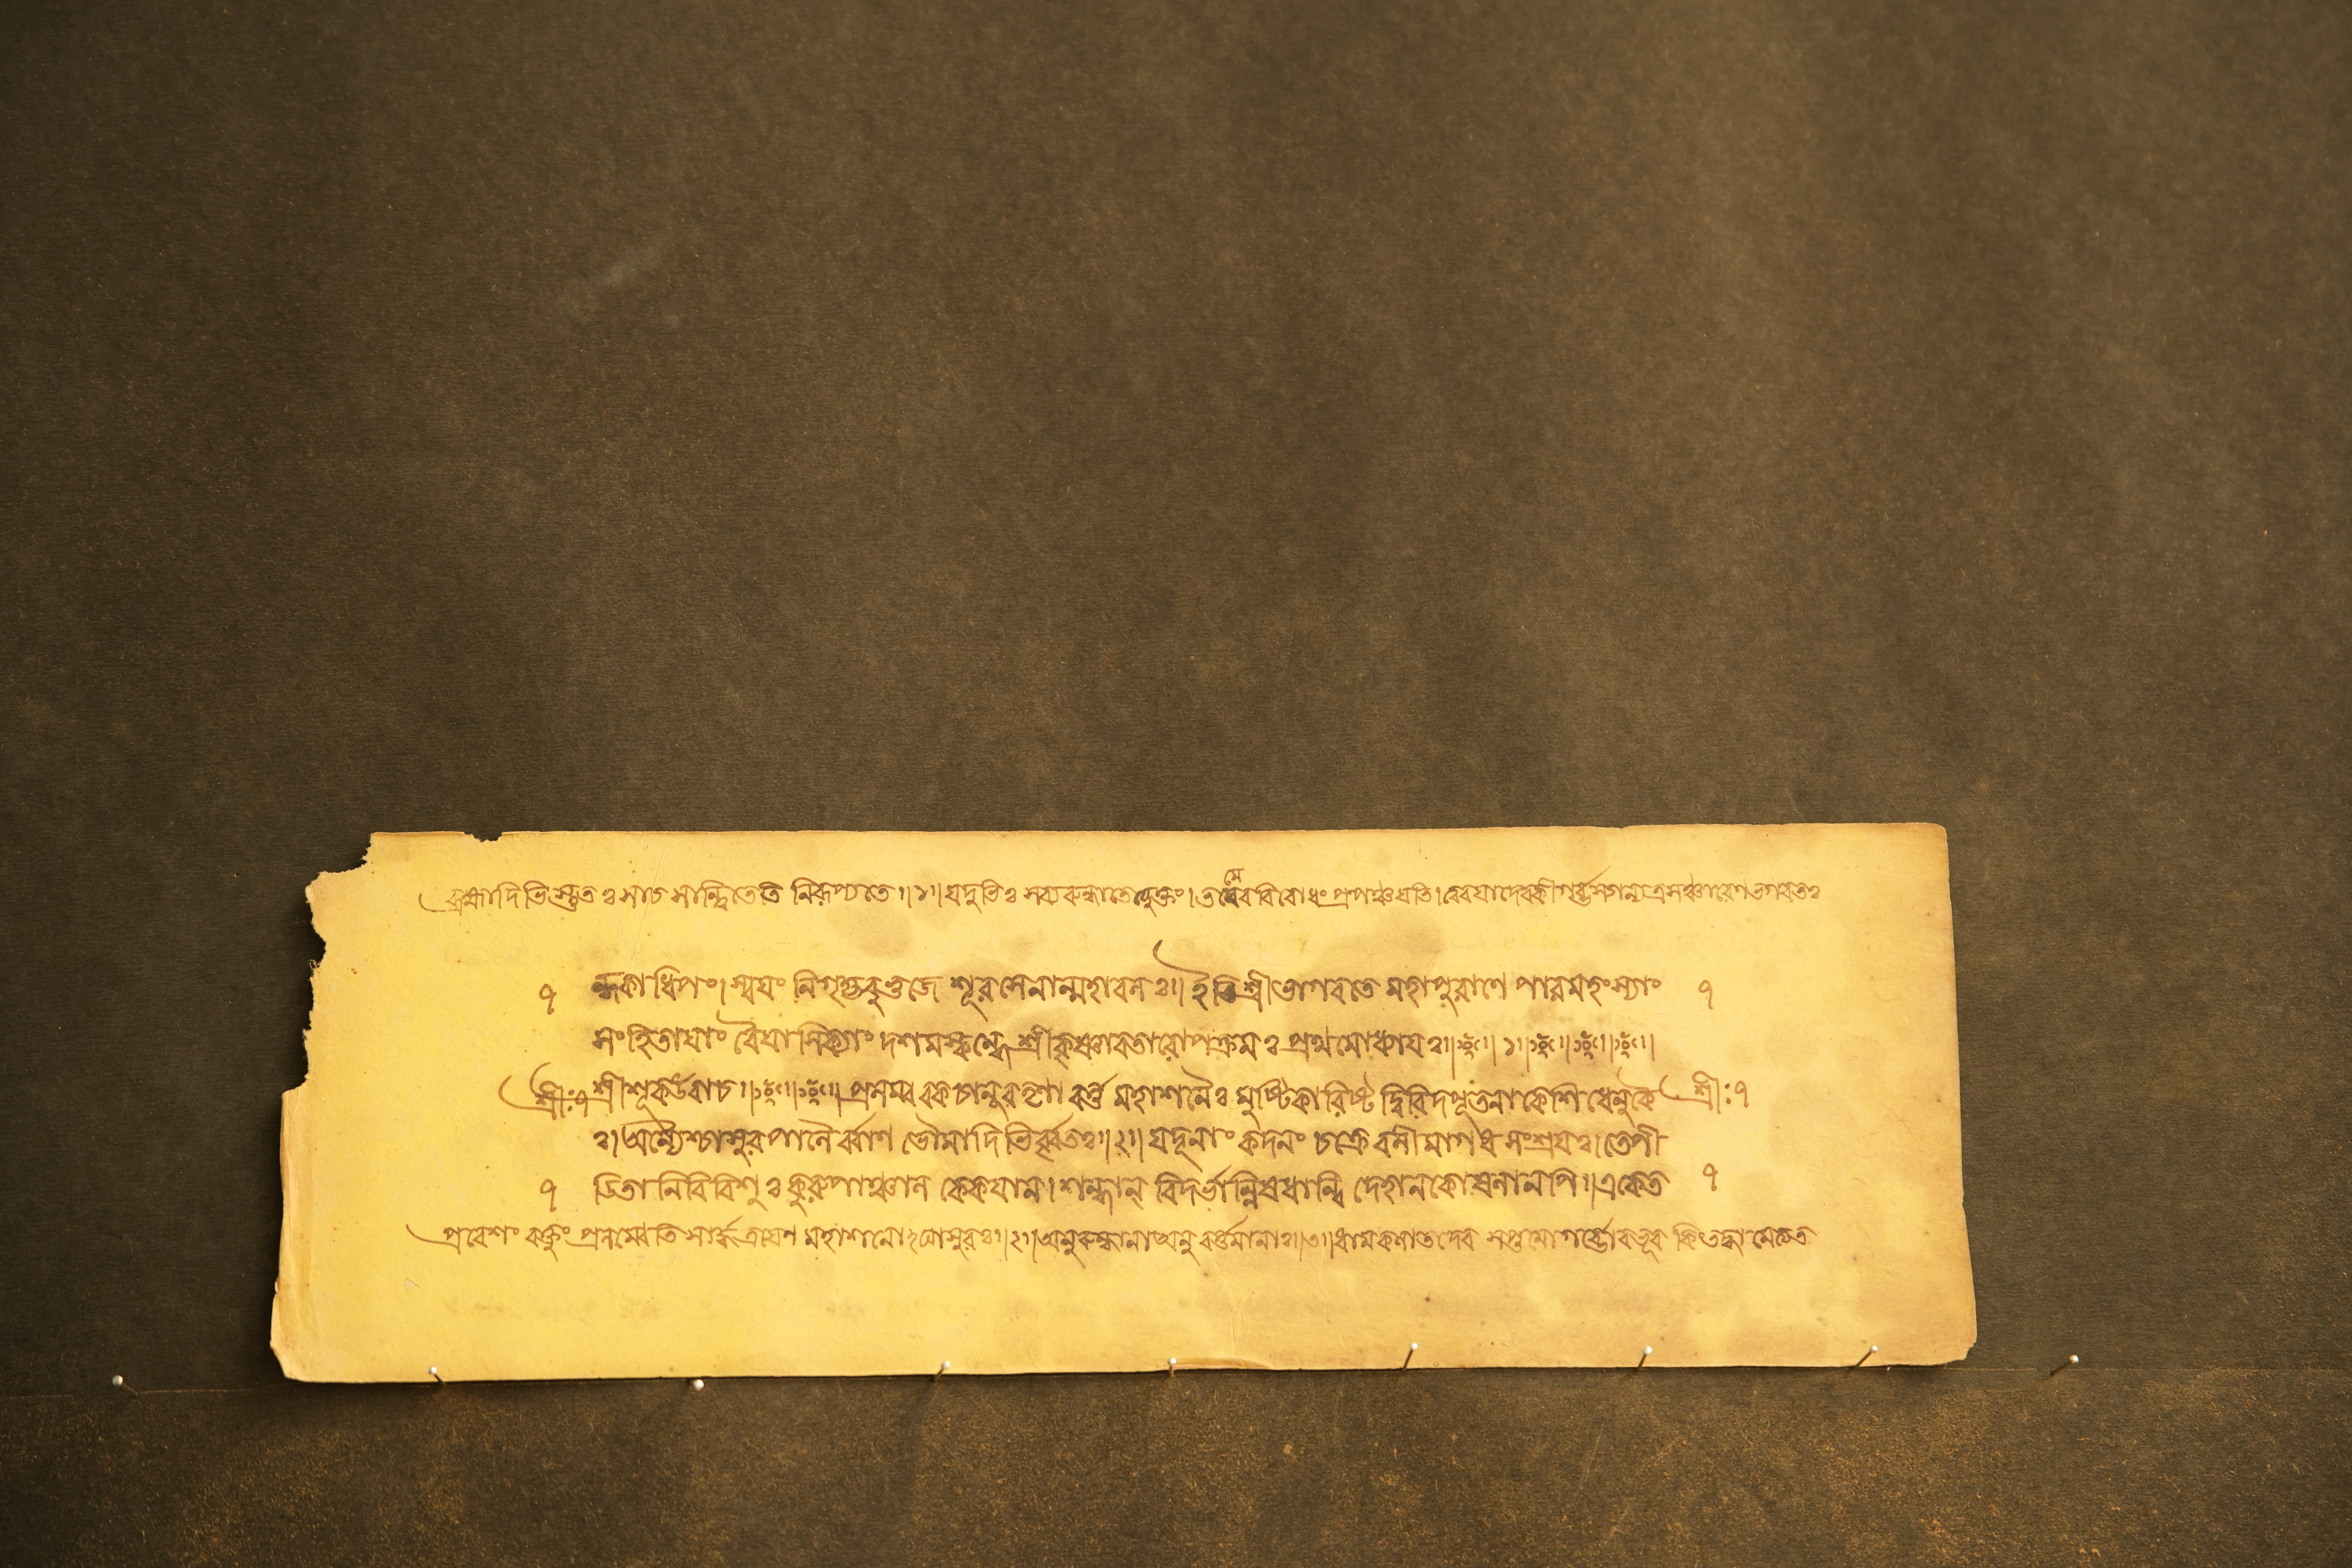 ব্রহ্মাদিভিস্তুতঃ সাচ সান্ত্বিতেতি নিরূপ্যতে।।১।। যদুভিঃ সব্যরুন্ধ্যতেত্যুক্তং। তমেব বিরোধং প্রপঞ্চয়তি।
ন্ধকাধিপং। স্বযং নিগৃহ্য বুভুজে শূরসেনান্মহাবলঃ।। ইতি শ্রীভাগবতে মহাপুরাণে পারমহংস্যাং
সংহিতাযাং বৈযাসিক্যাং দশমস্কন্ধে শ্রীকৃষ্ণাবতারোপক্রমঃ প্রথমোধ্যাযঃ।। ১।।
শ্রীঃ ৭ শ্রীশূকউবাচ।। প্রলম্ববকচানুরতৃণাবর্ত্ত মহাশনৈঃ মুষ্টিকারিষ্ট দ্বিবিদপূতনাকেশিধেনুকৈ শ্রীঃ ৭
ঃ। অন্যৈশ্চাসুরপালৈর্ব্বাণ ভৌমাদিভির্ব্বৃতঃ।।২।। যদূনাং কদনং চক্রে বলী মাগধ সংশ্রযঃ। তেপী
৭ ডিতা নিবিবিশুঃ কুরুপাঞ্চাল কেকযান। শাল্বান্ বিদর্ভান্নিষধান্বি দেহানকোষলানপি।। একেত ৭
প্রবেশং বক্তুং প্রলম্বেতি সার্দ্ধত্রযেণ মহাশনোঽঘাসুরঃ।।২।। অনুরুন্ধানা অনুবর্ত্তমানাঃ।।৩।।